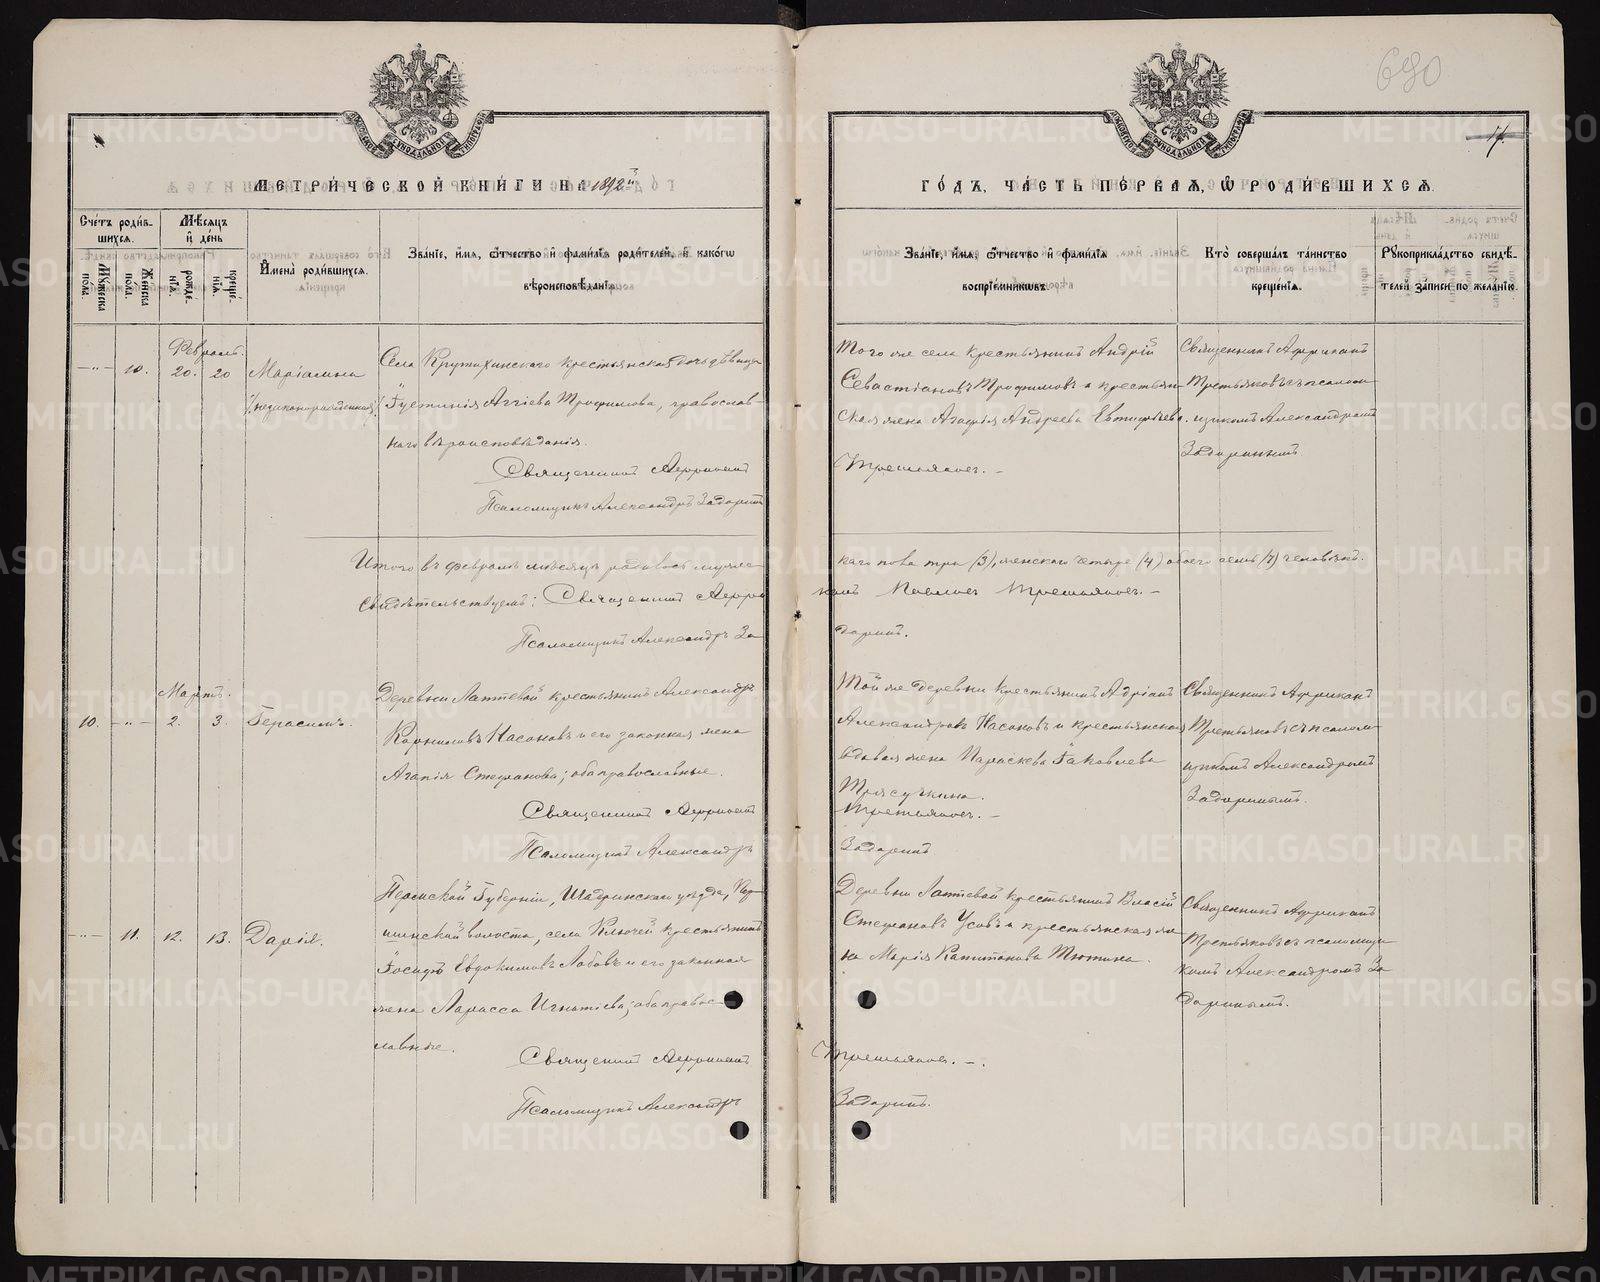 690
14.
МЕТРИЧЕСКОЙ КНИГИ НА 1892й
ГОДЪ, ЧАСТЬ ПЕРВАЯ, Ѡ РОДИВШИХСЯ.
Счетъ родившихся.
Мужеска пола.
Женска пола.
Мѣсяцъ и день
рожденія.
крещенія.
Имена родившихся.
Званіе, имя, ѿчество и фамилія родителей, и какогѡ вѣроисповѣданія.
Званіе, имя, ѿчество и фамилія воспріемникѡвъ.
Кто совершалъ таинство крещенія.
Рукоприкладство свидѣтелей записи по желанію.
Февраль.
—"— 10. 20. 20
Маріамна
(незаконорожденная)
Села Крутихинскаго крестьянская дочь дѣвица
Іустинія Аггіева Трофимова, православ-
наго вѣроисповѣданія.
Священникъ Африканъ
Псаломщикъ Александръ Задоринъ
Того же села крестьянинъ Андрій
Севастіановъ Трофимовъ и крестьян-
ская жена Агафія Андреева Евтифѣева.
Третьяковъ. —
Священникъ Африканъ
Третьяковъ съ псалом-
щикомъ Александромъ
Задоринымъ.
Итого въ февралѣ мѣсяцѣ родилось муже-
скаго пола три (3), женскаго четыре (4) обоего семь (7) человѣкъ.
Свидѣтельствуемъ: Священникъ Африканъ
Третьяковъ. —
Псаломщикъ Александръ За-
доринъ.
Мартъ.
10. —"— 2. 3.
Герасимъ.
Деревни Лаптевой крестьянинъ Александръ
Корниловъ Насоновъ и его законная жена
Агапія Стефанова; оба православные.
Священникъ Африканъ
Псаломщикъ Александръ
Той же деревни крестьянинъ Адріанъ
Александровъ Насоновъ и крестьянская
вдовая жена Параскева Іаковлева
Трясучкина.
Третьяковъ. —
Задоринъ
Священникъ Африканъ
Третьяковъ съ псалом-
щикомъ Александромъ
Задоринымъ.
—"— 11. 12. 13.
Дарія.
Пермской Губерніи, Шадринскаго уѣзда,
волости, села Ключей крестьянинъ
Іосифъ Евдокимовъ Лобовъ и его законная
жена Ларисса Игнатіева; оба правос-
лавные.
Священникъ Африканъ
Псаломщикъ Александръ
Деревни Лаптевой крестьянинъ Власій
Стефановъ Усовъ и крестьянская же-
на Марія Капитонова Тютина.
Третьяковъ. —.
Задоринъ.
Священникъ Африканъ
Третьяковъ съ псаломщи-
комъ Александромъ За-
доринымъ.
METRIKI.GASO-URAL.RU